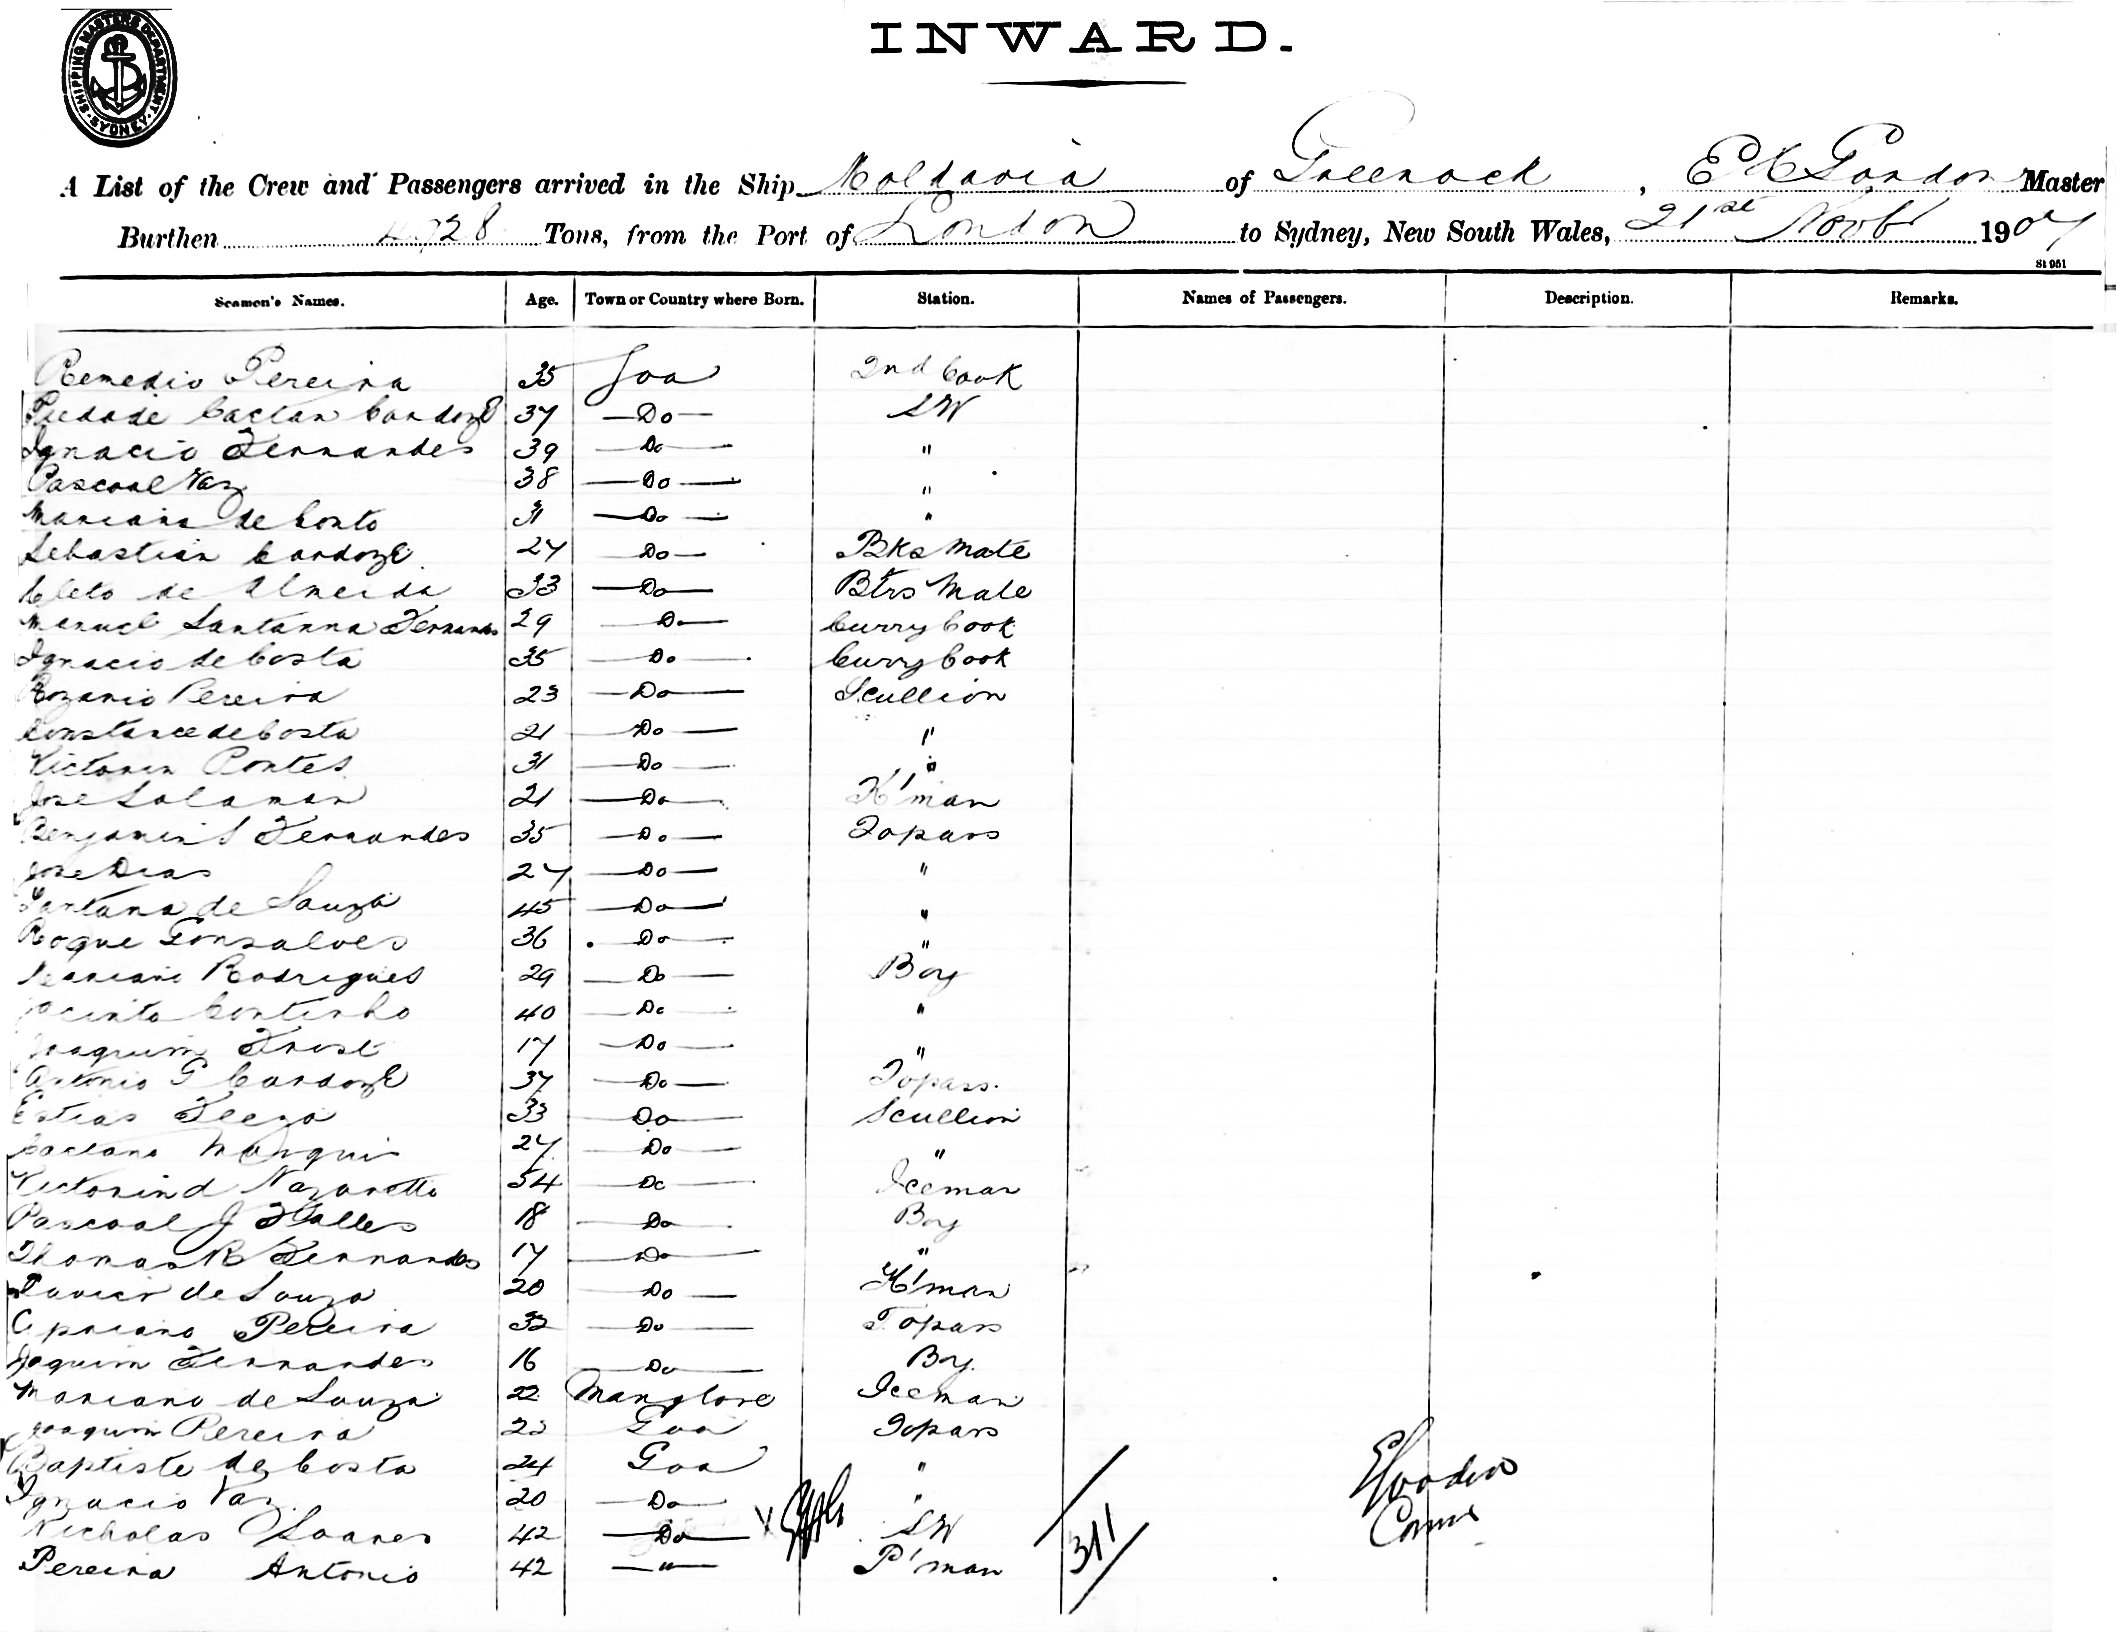 SHIPPING MASTERS DEPARTMENT SYDNEY
INWARD.
A List of the Crew and Passengers arrived in the Ship Moldavia of Greenock, E Gordon Master
Burthen Tons, from the Port of London to Sydney, New South Wales, 21st Novbr 1907
St 951
Seamen's Names. Age. Town or Country where Born. Station. Names of Passengers. Description. Remarks.
Remedio Pereira 35 Goa 2nd Cook
Piedade Caetan Cardozo 37 Do SW
Ignacio Fernandes 39 Do "
Pascoal Vaz 38 Do "
Mariana de Couto 31 Do "
Sebastian Cardozo 27 Do Bks Mate
Cleto de Almeida 33 Do Btrs Mate
Manuel Santanna Fernandes 29 Do Curry Cook
Ignacio de Costa 35 Do Curry Cook
Rozario Pereira 23 Do Scullion
Constance de Costa 21 Do "
Victorin Pontes 31 Do "
Jose Salaman 21 Do K'man
Benjamin S Fernandes 35 Do Topass
Jose Dias 27 Do "
Santana de Souza 45 Do "
Roque Gonsalves 36 Do "
Mariani Rodrigues 29 Do Boy
Jacinto Continho 40 Do "
Joaquim 17 Do "
Antonio G Cardozo 37 Do Topass.
33 Do Scullion
Caetano 27 Do "
Victorino Nazaretto 54 Do Iceman
Pascoal J 18 Do Boy
Thomas R Fernandes 17 Do "
Xavier de Souza 20 Do K'man
Cipriano Pereira 32 Do Topass
Joquim Fernandes 16 Do Boy.
Mariano de Souza 22 Manglore Iceman
Joaquim Pereira Goa Topass
Baptiste de Costa 24 Goa "
Ignacio Vaz. 20 Do "
Nicholas Soares 42 Do SW
Pereira Antonio 42 " P'man
311